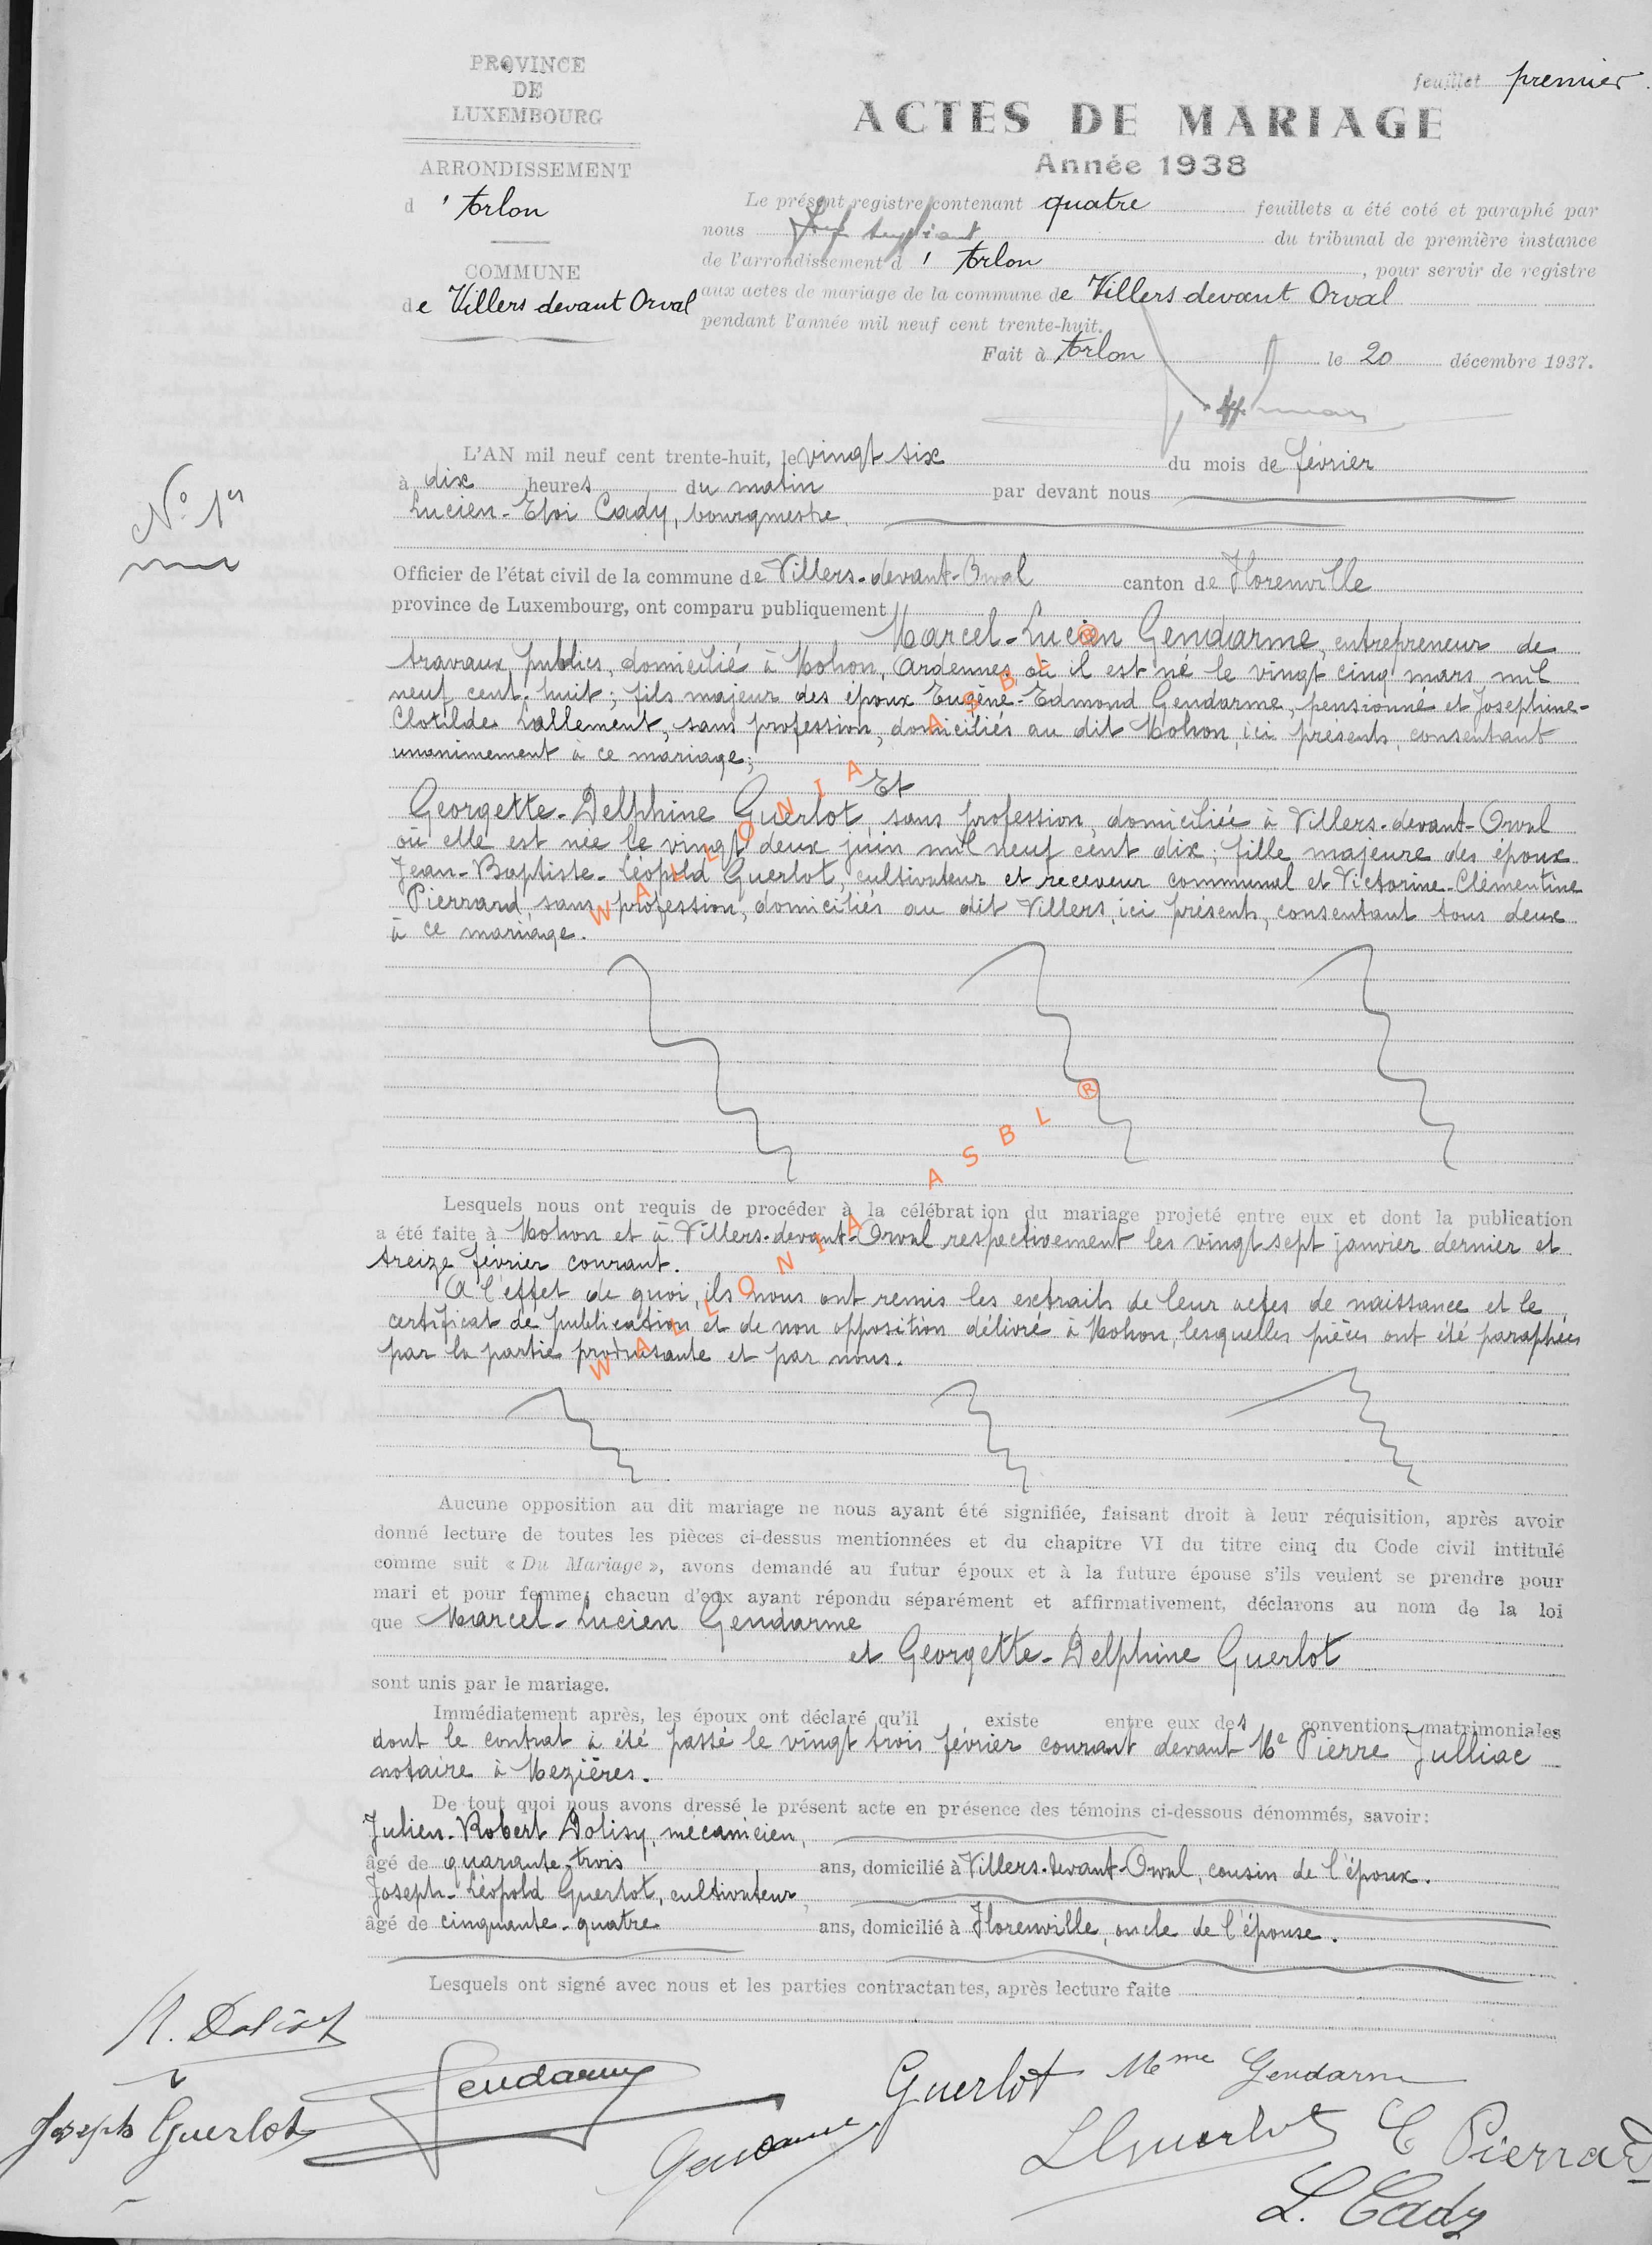 PROVINCE
DE
LUXEMBOURG
ARRONDISSEMENT
d'Arlon
COMMUNE
de Villers devant Orval
feuillet premier.
ACTES DE MARIAGE
Année 1938
Le présent registre contenant quatre feuillets a été coté et paraphé par
nous Juge suppléant du tribunal de première instance
de l'arrondissement d'Arlon, pour servir de registre
aux actes de mariage de la commune de Villers devant Orval
pendant l'année mil neuf cent trente-huit.
Fait à Arlon le 20 décembre 1937.
N° 1er
L'AN mil neuf cent trente-huit, le vingt six du mois de février
à dix heures du matin par devant nous
Lucien-Eloi Cady, bourgmestre,
Officier de l'état civil de la commune de Villers-devant-Orval canton de Florenville
province de Luxembourg, ont comparu publiquement
Marcel-Lucien Gendarme, entrepreneur de
travaux publics, domicilié à Mohon, Ardennes, où il est né le vingt cinq mars mil
neuf cent huit; fils majeur des époux Eugène-Edmond Gendarme, pensionné et Joséphine-
Clotilde Lallement, sans profession, domiciliés au dit Mohon, ici présents, consentant
unanimement à ce mariage;
Et
Georgette-Delphine Guerlot, sans profession, domiciliée à Villers-devant-Orval
où elle est née le vingt deux juin mil neuf cent dix; fille majeure des époux
Jean-Baptiste-Léopold Guerlot, cultivateur et receveur communal et Victorine-Clémentine
Pierrard, sans profession, domiciliés au dit Villers, ici présents, consentant tous deux
à ce mariage.
WALLONIA ASBL ®
WALLONIA ASBL ®
Lesquels nous ont requis de procéder à la célébration du mariage projeté entre eux et dont la publication
a été faite à Mohon et à Villers-devant-Orval respectivement les vingt sept janvier dernier et
treize février courant.
A l'effet de quoi, ils nous ont remis les extraits de leur actes de naissance et le
certificat de publication et de non opposition délivré à Mohon, lesquelles pièces ont été paraphées
par la partie produisante et par nous.
Aucune opposition au dit mariage ne nous ayant été signifiée, faisant droit à leur réquisition, après avoir
donné lecture de toutes les pièces ci-dessus mentionnées et du chapitre VI du titre cinq du Code civil intitulé
comme suit « Du Mariage », avons demandé au futur époux et à la future épouse s'ils veulent se prendre pour
mari et pour femme; chacun d'eux ayant répondu séparément et affirmativement, déclarons au nom de la loi
que Marcel-Lucien Gendarme
et Georgette-Delphine Guerlot
sont unis par le mariage.
Immédiatement après, les époux ont déclaré qu'il existe entre eux des conventions matrimoniales
dont le contrat à été passé le vingt trois février courant devant Me Pierre Julliac
notaire à Mezières.
De tout quoi nous avons dressé le présent acte en présence des témoins ci-dessous dénommés, savoir:
Julien-Robert Dolisy, mecanicien,
âgé de quarante-trois ans, domicilié à Villers-devant-Orval, cousin de l'époux.
Joseph-Léopold Guerlot, cultivateur,
âgé de cinquante-quatre ans, domicilié à Florenville, oncle de l'épouse.
Lesquels ont signé avec nous et les parties contractantes, après lecture faite
Gendarme
Guerlot
Mme Gendarme
Joseph Guerlot
Gendarme
L Guerlot
C Pierrard
L. Cady